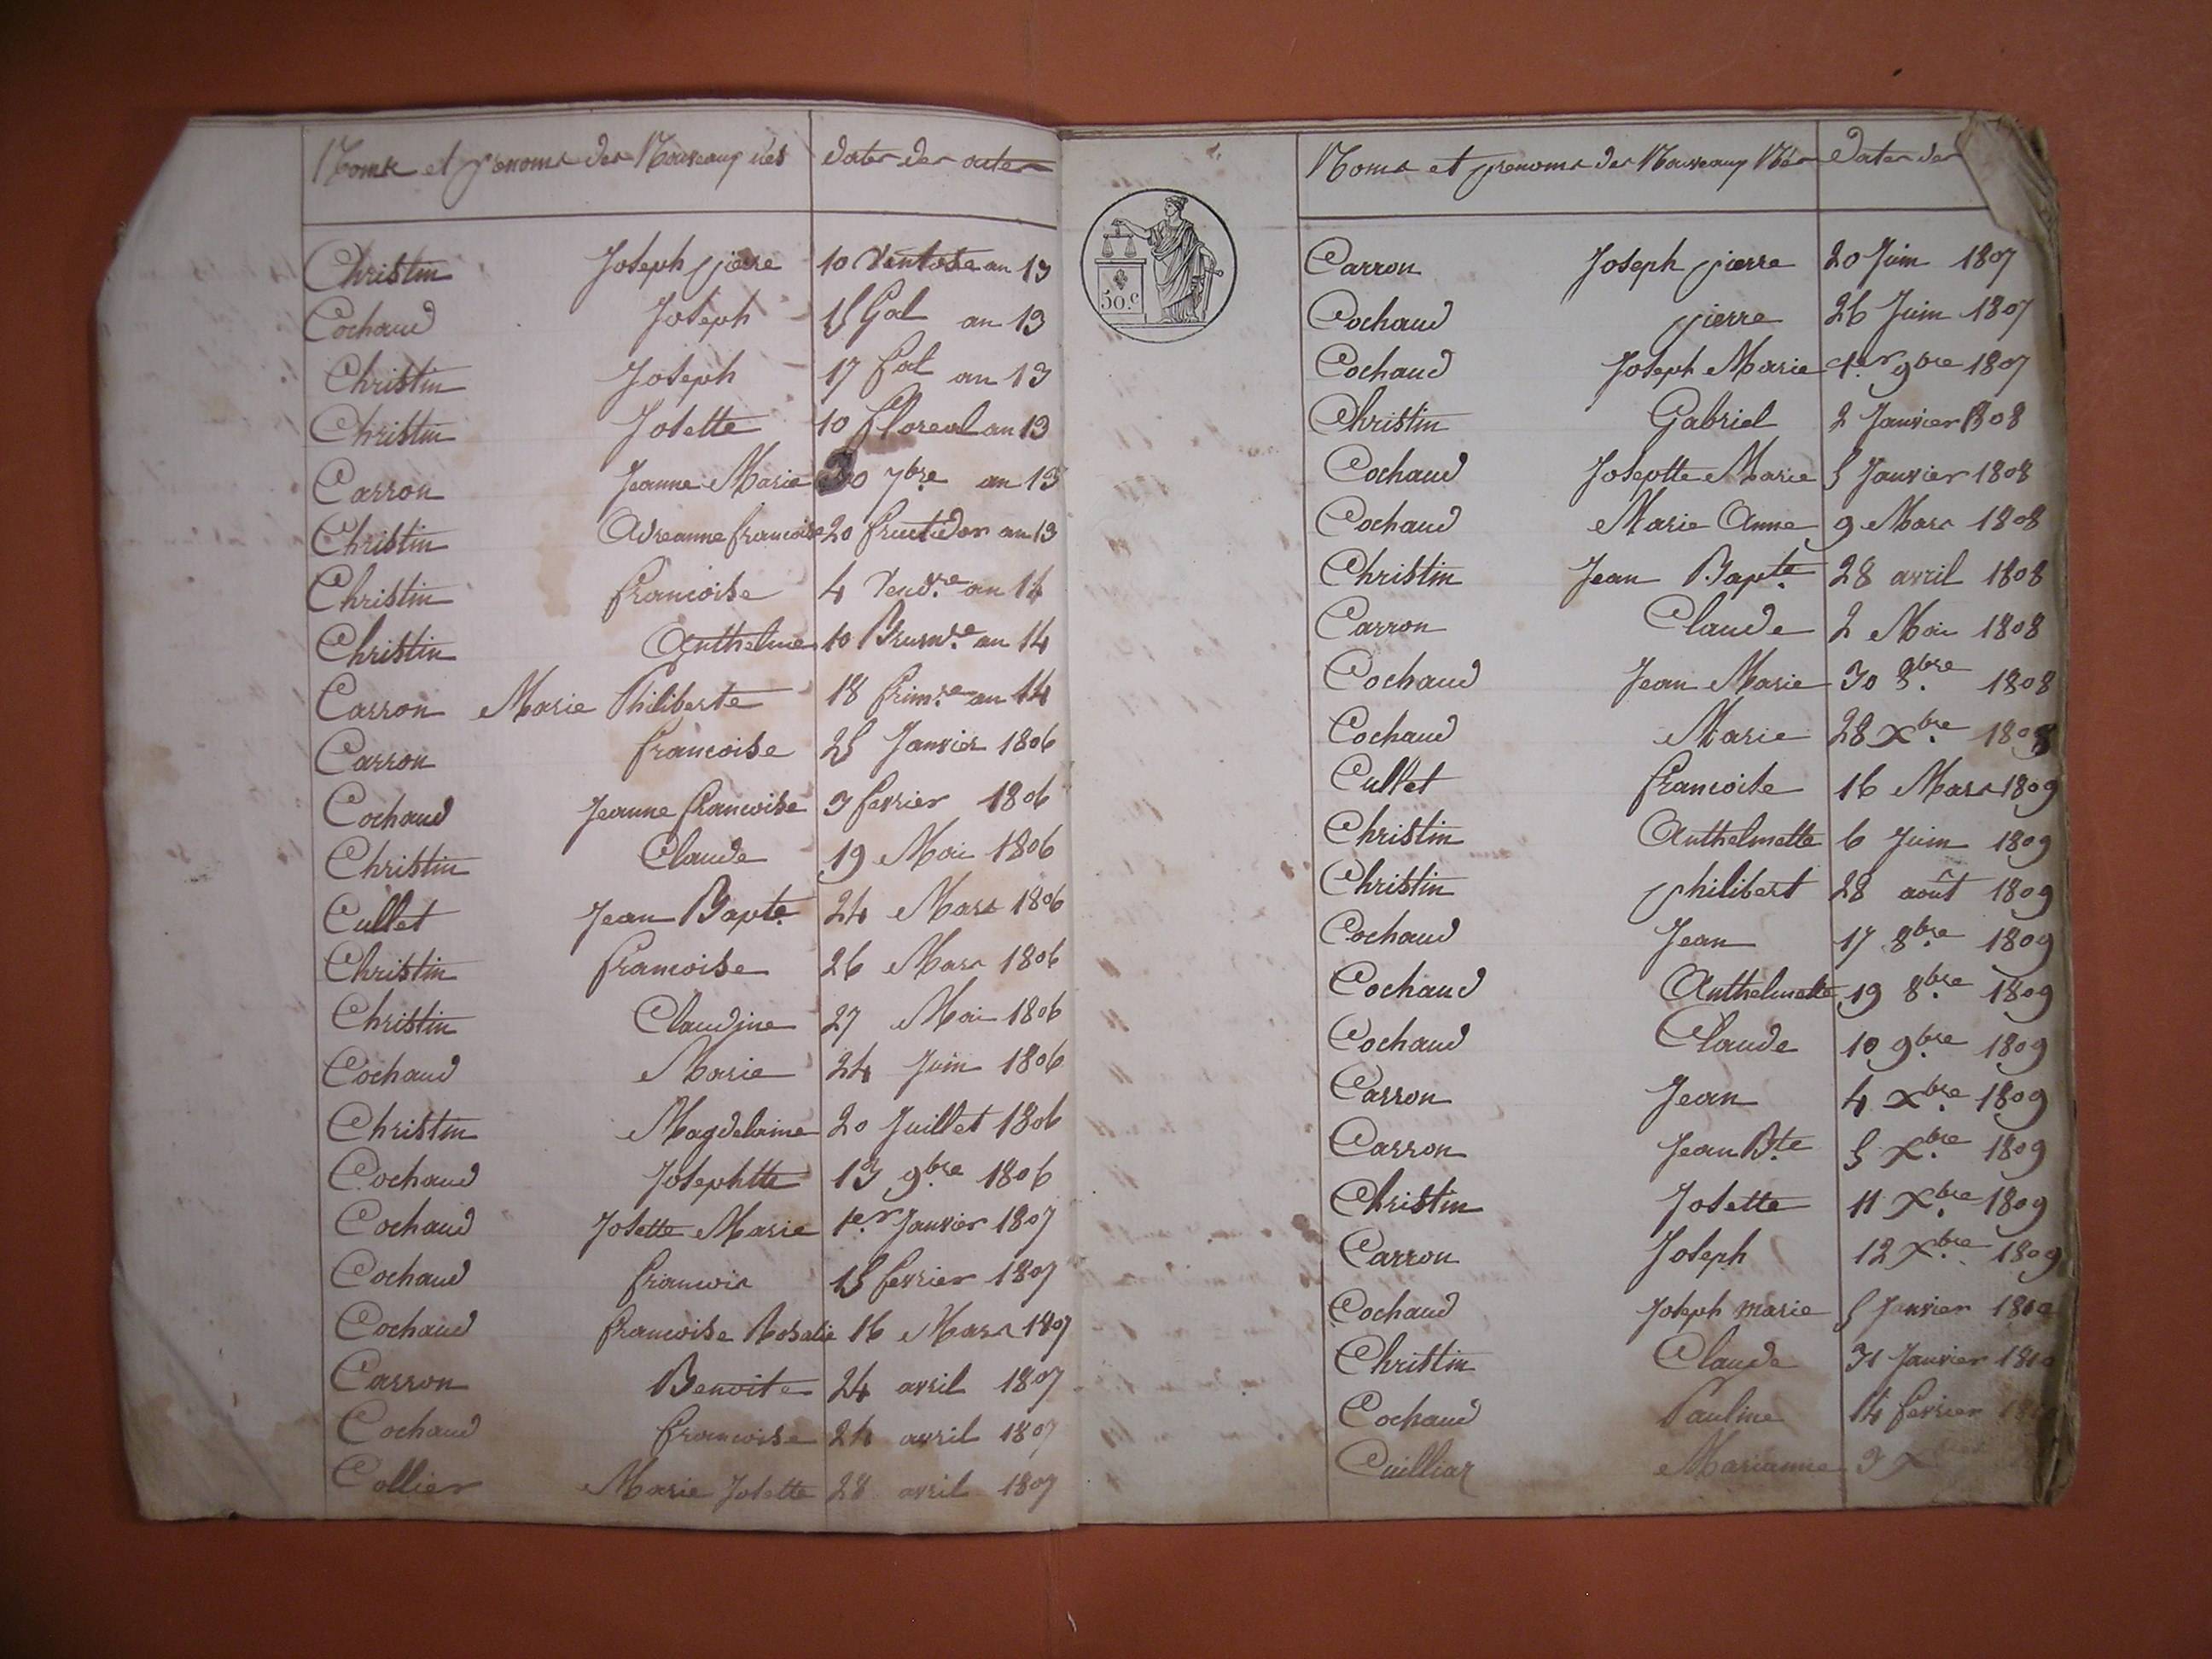 Noms et prenoms des Nouveaux nés dates des actes
Christin Joseph pierre 10 Ventose an 13
Cochaud Joseph 15 Gal an 13
Christin Joseph 17 fol an 13
Christin Josette 10 floreal an 13
Carron Jeanne Marie 30 7bre an 13
Christin Adreanne francoise 20 fructidor an 13
Christin francoise 4 Vendre an 14
Christin Anthelme 10 Brumre an 14
Carron Marie Philiberte 18 frimre an 14
Carron francoise 25 Janvier 1806
Cochaud Jeanne francoise 3 fevrier 1806
Christin Claude 19 Mai 1806
Cullet Jean Bapte 24 Mars 1806
Christin francoise 26 Mars 1806
Christin Claudine 27 Mai 1806
Cochaud Marie 24 Juin 1806
Christin Magdelaine 20 Juillet 1806
Cochaud Josephtte 13 9bre 1806
Cochaud Josette Marie 1er Janvier 1807
Cochaud francois 15 fevrier 1807
Cochaud francoise Rosalie 16 Mars 1807
Carron Benoite 24 avril 1807
Cochaud francoise 24 avril 1807
Collier Marie Josette 28 avril 1807
50.c
Noms et prenoms des Nouveaux Nés Dates des
Carron Joseph pierre 20 Juin 1807
Cochaud pierre 26 Juin 1807
Cochaud Joseph Marie 1er 9bre 1807
Christin Gabriel 2 Janvier 1808
Cochaud Joseptte Marie 5 Janvier 1808
Cochaud Marie Anne 9 Mars 1808
Christin Jean Bapte 28 avril 1808
Carron Claude 2 Mai 1808
Cochaud Jean Marie 30 8bre 1808
Cochaud Marie 28 Xbre 1808
Cullet francoise 16 Mars 1809
Christin Anthelmette 6 Juin 1809
Christin philibert 28 août 1809
Cochaud Jean 17 8bre 1809
Cochaud Anthelmette 19 8bre 1809
Cochaud Claude 10 9bre 1809
Carron Jean 4 Xbre 1809
Carron Jean Bte 5 Xbre 1809
Christin Josette 11 Xbre 1809
Carron Joseph 12 Xbre 1809
Cochaud Joseph marie 5 Janvier 1810
Christin Claude 31 Janvier 1810
Cochaud Pauline 14 fevrier
Cuilliar Marianne 3